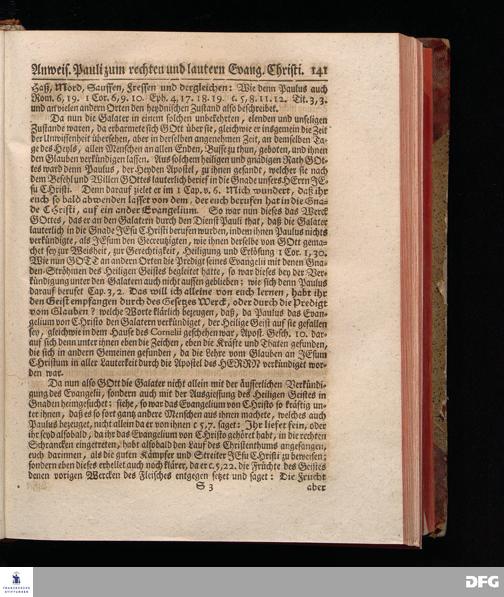 Anweis. Pauli zum rechten und lautern Evang. Christi. 141
Haß, Mord, Sauffen, Fressen und dergleichen: Wie denn Paulus auch
Rom. 6, 19. 1 Cor. 6, 9. 10. Eph. 4, 17. 18. 19. c. 5, 8. 11. 12. Tit. 3, 3.
und an vielen andern Orten den heydnischen Zustand also beschreibet.
Da nun die Galater in einem solchen unbekehrten, elenden und unseligen
Zustande waren, da erbarmete sich GOtt über sie, gleichwie er insgemein die Zeit
der Unwissenheit übersehen, aber in derselben angenehmen Zeit, an demselben Ta-
ge des Heyls, allen Menschen an allen Enden, Busse zu thun, geboten, und ihnen
den Glauben verkündigen lassen. Aus solchem heiligen und gnädigen Rath GOt-
tes ward denn Paulus, der Heyden Apostel, zu ihnen gesandt, welcher sie nach
dem Befehl und Willen GOttes lauterlich berief in die Gnade unsers HErrn JE-
su Christi. Denn darauf zielet er im 1 Cap. v. 6. Mich wundert, daß ihr
euch so bald abwenden lasset von dem, der euch berufen hat in die Gna-
de Christi, auf ein ander Evangelium. So war nun dieses das Werck
GOttes, das er an den Galatern durch den Dienst Pauli that, daß die Galater
lauterlich in die Gnade JEsu Christi berufen wurden, indem ihnen Paulus nichts
verkündigte, als JEsum den Gecreutzigten, wie ihnen derselbe von GOtt gema-
chet sey zur Weisheit, zur Gerechtigkeit, Heiligung und Erlösung 1 Cor. 1, 30.
Wie nun GOTT an andern Orten die Predigt seines Evangelii mit denen Gna-
den-Ströhmen des Heiligen Geistes begleitet hatte, so war dieses bey der Ver-
kündigung unter den Galatern auch nicht aussen geblieben: wie sich denn Paulus
darauf berufet Cap. 3, 2. Das will ich alleine von euch lernen, habt ihr
den Geist empfangen durch des Gesetzes Werck, oder durch die Predigt
vom Glauben? welche Worte klärlich bezeugen, daß, da Paulus das Evan-
gelium von Christo den Galatern verkündiget, der Heilige Geist auf sie gefallen
sey, gleichwie in dem Hause des Cornelii geschehen war, Apost. Gesch. 10. Dar-
auf sich denn unter ihnen eben die Zeichen, eben die Kräfte und Thaten gefunden,
die sich in andern Gemeinen gefunden, da die Lehre vom Glauben an JEsum
Christum in aller Lauterkeit durch die Apostel des HERRN verkündiget wor-
den war.
Da nun also GOtt die Galater nicht allein mit der äusserlichen Verkündi-
gung des Evangelii, sondern auch mit der Ausgiessung des Heiligen Geistes in
Gnaden heimgesucht: siehe, so war das Evangelium von Christo so kräftig un-
ter ihnen, daß es so fort gantz andere Menschen aus ihnen machete, welches auch
Paulus bezeuget, nicht allein da er von ihnen c 5, 7. saget: Ihr liefet fein, oder
ihr seyd alsobald, da ihr das Evangelium von Christo gehöret habt, in die rechten
Schrancken eingetreten, habt alsobald den Lauf des Christenthums angefangen,
euch darinnen, als die guten Kämpfer und Streiter JEsu Christi zu beweisen;
sondern eben dieses erhellet auch noch klärer, da er c. 5, 22. die Früchte des Geistes
denen vorigen Wercken des Fleisches entgegen setzet und saget: Die Frucht
S 3 aber
FRANCKESCHE STIFTUNGEN
DFG